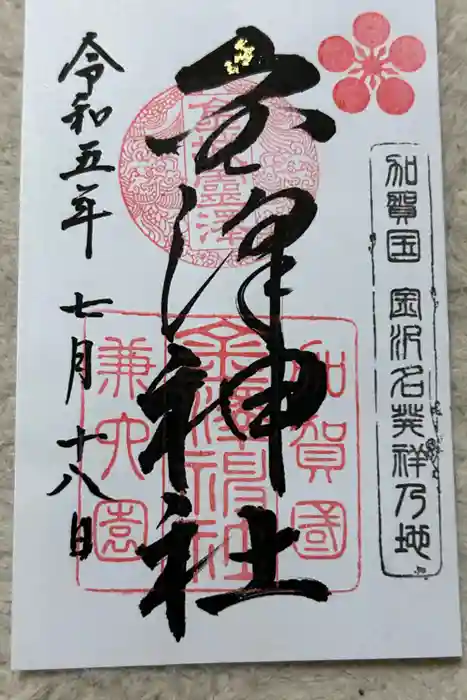 加賀国 金沢名発祥乃地
金澤神社
金城霊澤
加賀國
金澤神社
兼六園
令和五年 七月 十八日